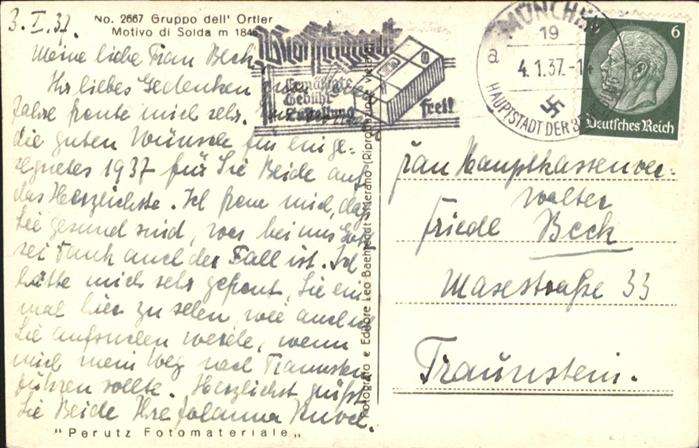 No. 2667 Gruppo dell' Ortler
Motivo di Solda m 184
3. I. 37.
Meine liebe Frau Beck.
Ihr liebes Gedenken zum
Jahre freute mich sehr.
die guten Wünsche für ein ge-
segnetes 1937 für Sie Beide auf
das Herzlichste. Ich freue mich, daß
Sie gesund sind, was bei uns Gott
sei Dank auch der Fall ist. Ich
hätte mich sehr gefreut, Sie ein
mal hier zu sehen wie auch ich
Sie aufsuchen werde, wenn
mich mein Weg nach Traunstein
führen sollte. Herzlichst grüßt
Sie Beide Ihre Johanna
"Perutz Fotomateriale"
Fotografo e Editore Leo Baehrendt Merano
Gebühr
Zustellung
frei!
MÜNCHEN
19
a
4.1.37.-1
HAUPTSTADT DER
6
Deutsches Reich
Frau Hauptkassenver-
walter
Friede Beck
Maxstraße 33
Traunstein.